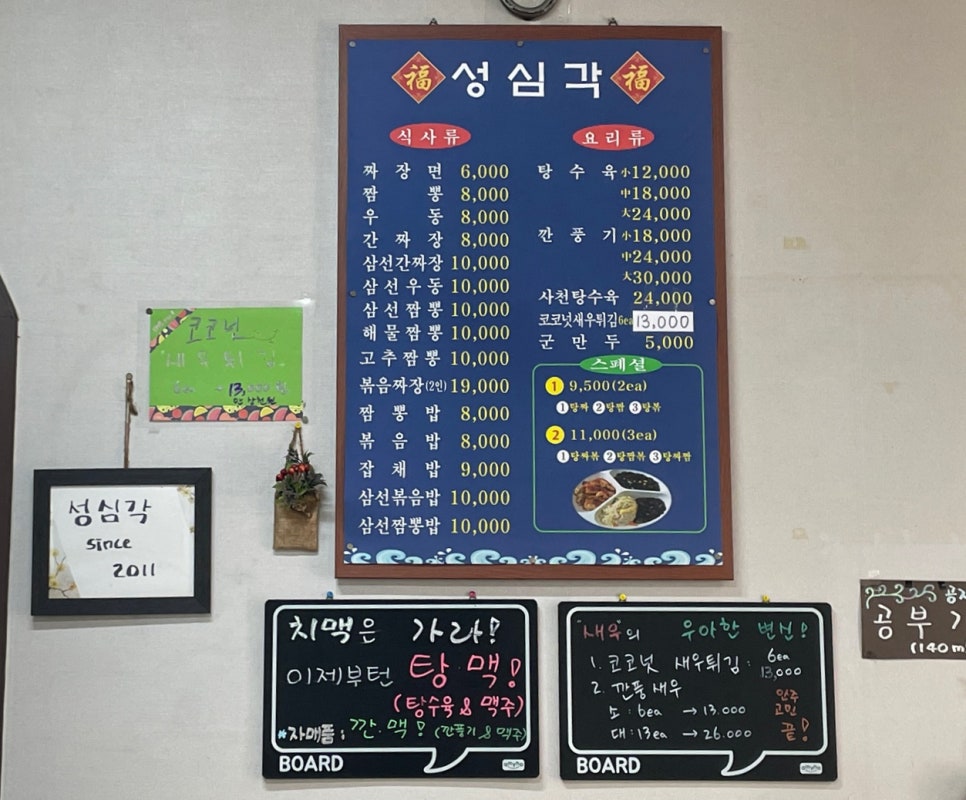 福 성심각 福
식사류
짜장면 6,000
짬뽕 8,000
우동 8,000
간짜장 8,000
삼선간짜장 10,000
삼선우동 10,000
삼선짬뽕 10,000
해물짬뽕 10,000
고추짬뽕 10,000
볶음짜장(2인) 19,000
짬뽕밥 8,000
볶음밥 8,000
잡채밥 9,000
삼선볶음밥 10,000
삼선짬뽕밥 10,000
요리류
탕수육 小 12,000
中 18,000
大 24,000
깐풍기 小 18,000
中 24,000
大 30,000
사천탕수육 24,000
코코넛새우튀김 6ea 13,000
군만두 5,000
스페셜
1 9,500(2ea)
1 탕짜 2 탕짬 3 탕볶
2 11,000(3ea)
1 탕짜볶 2 탕짬볶 3 탕짜짬
코코넛
새우튀김
6ea → 13,
성심각
since
2011
치맥은 가라!
이제부턴 탕.맥!
(탕수육 & 맥주)
*자매품: 깐.맥! (깐풍기 & 맥주)
BOARD
"새우"의 우아한 변신!
1. 코코넛 새우튀김 : 6ea
13,000
2. 깐풍새우
소 : 6ea → 13.000
대 : 13ea → 26.000
안주
고민
끝!
BOARD
공부
(140m